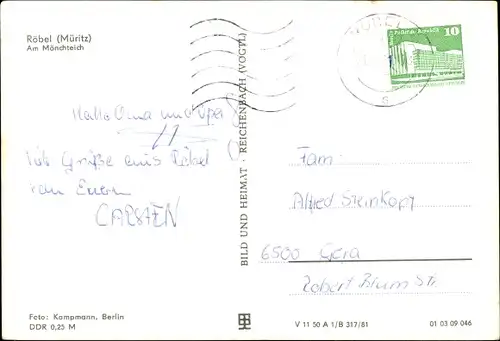 Röbel (Müritz)
Am Mönchteich
Hallo Oma und Opa
Grüße aus Röbel
von Euern
CARSTEN
BILD UND HEIMAT · REICHENBACH (VOGTL)
10
Fam.
Alfred Steinkopf
6500 Gera
Robert Blum Str.
Foto: Kampmann, Berlin
DDR 0,25 M
V 11 50 A 1/B 317/81
01 03 09 046